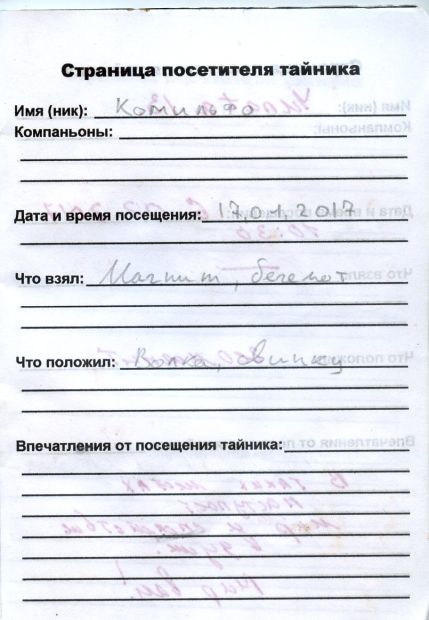 Страница посетителя тайника
Имя (ник): Комильфо
Компаньоны:
Дата и время посещения: 17.01.2017
Что взял: Магнит, бегемот
Что положил: Волка, свинку
Впечатления от посещения тайника: